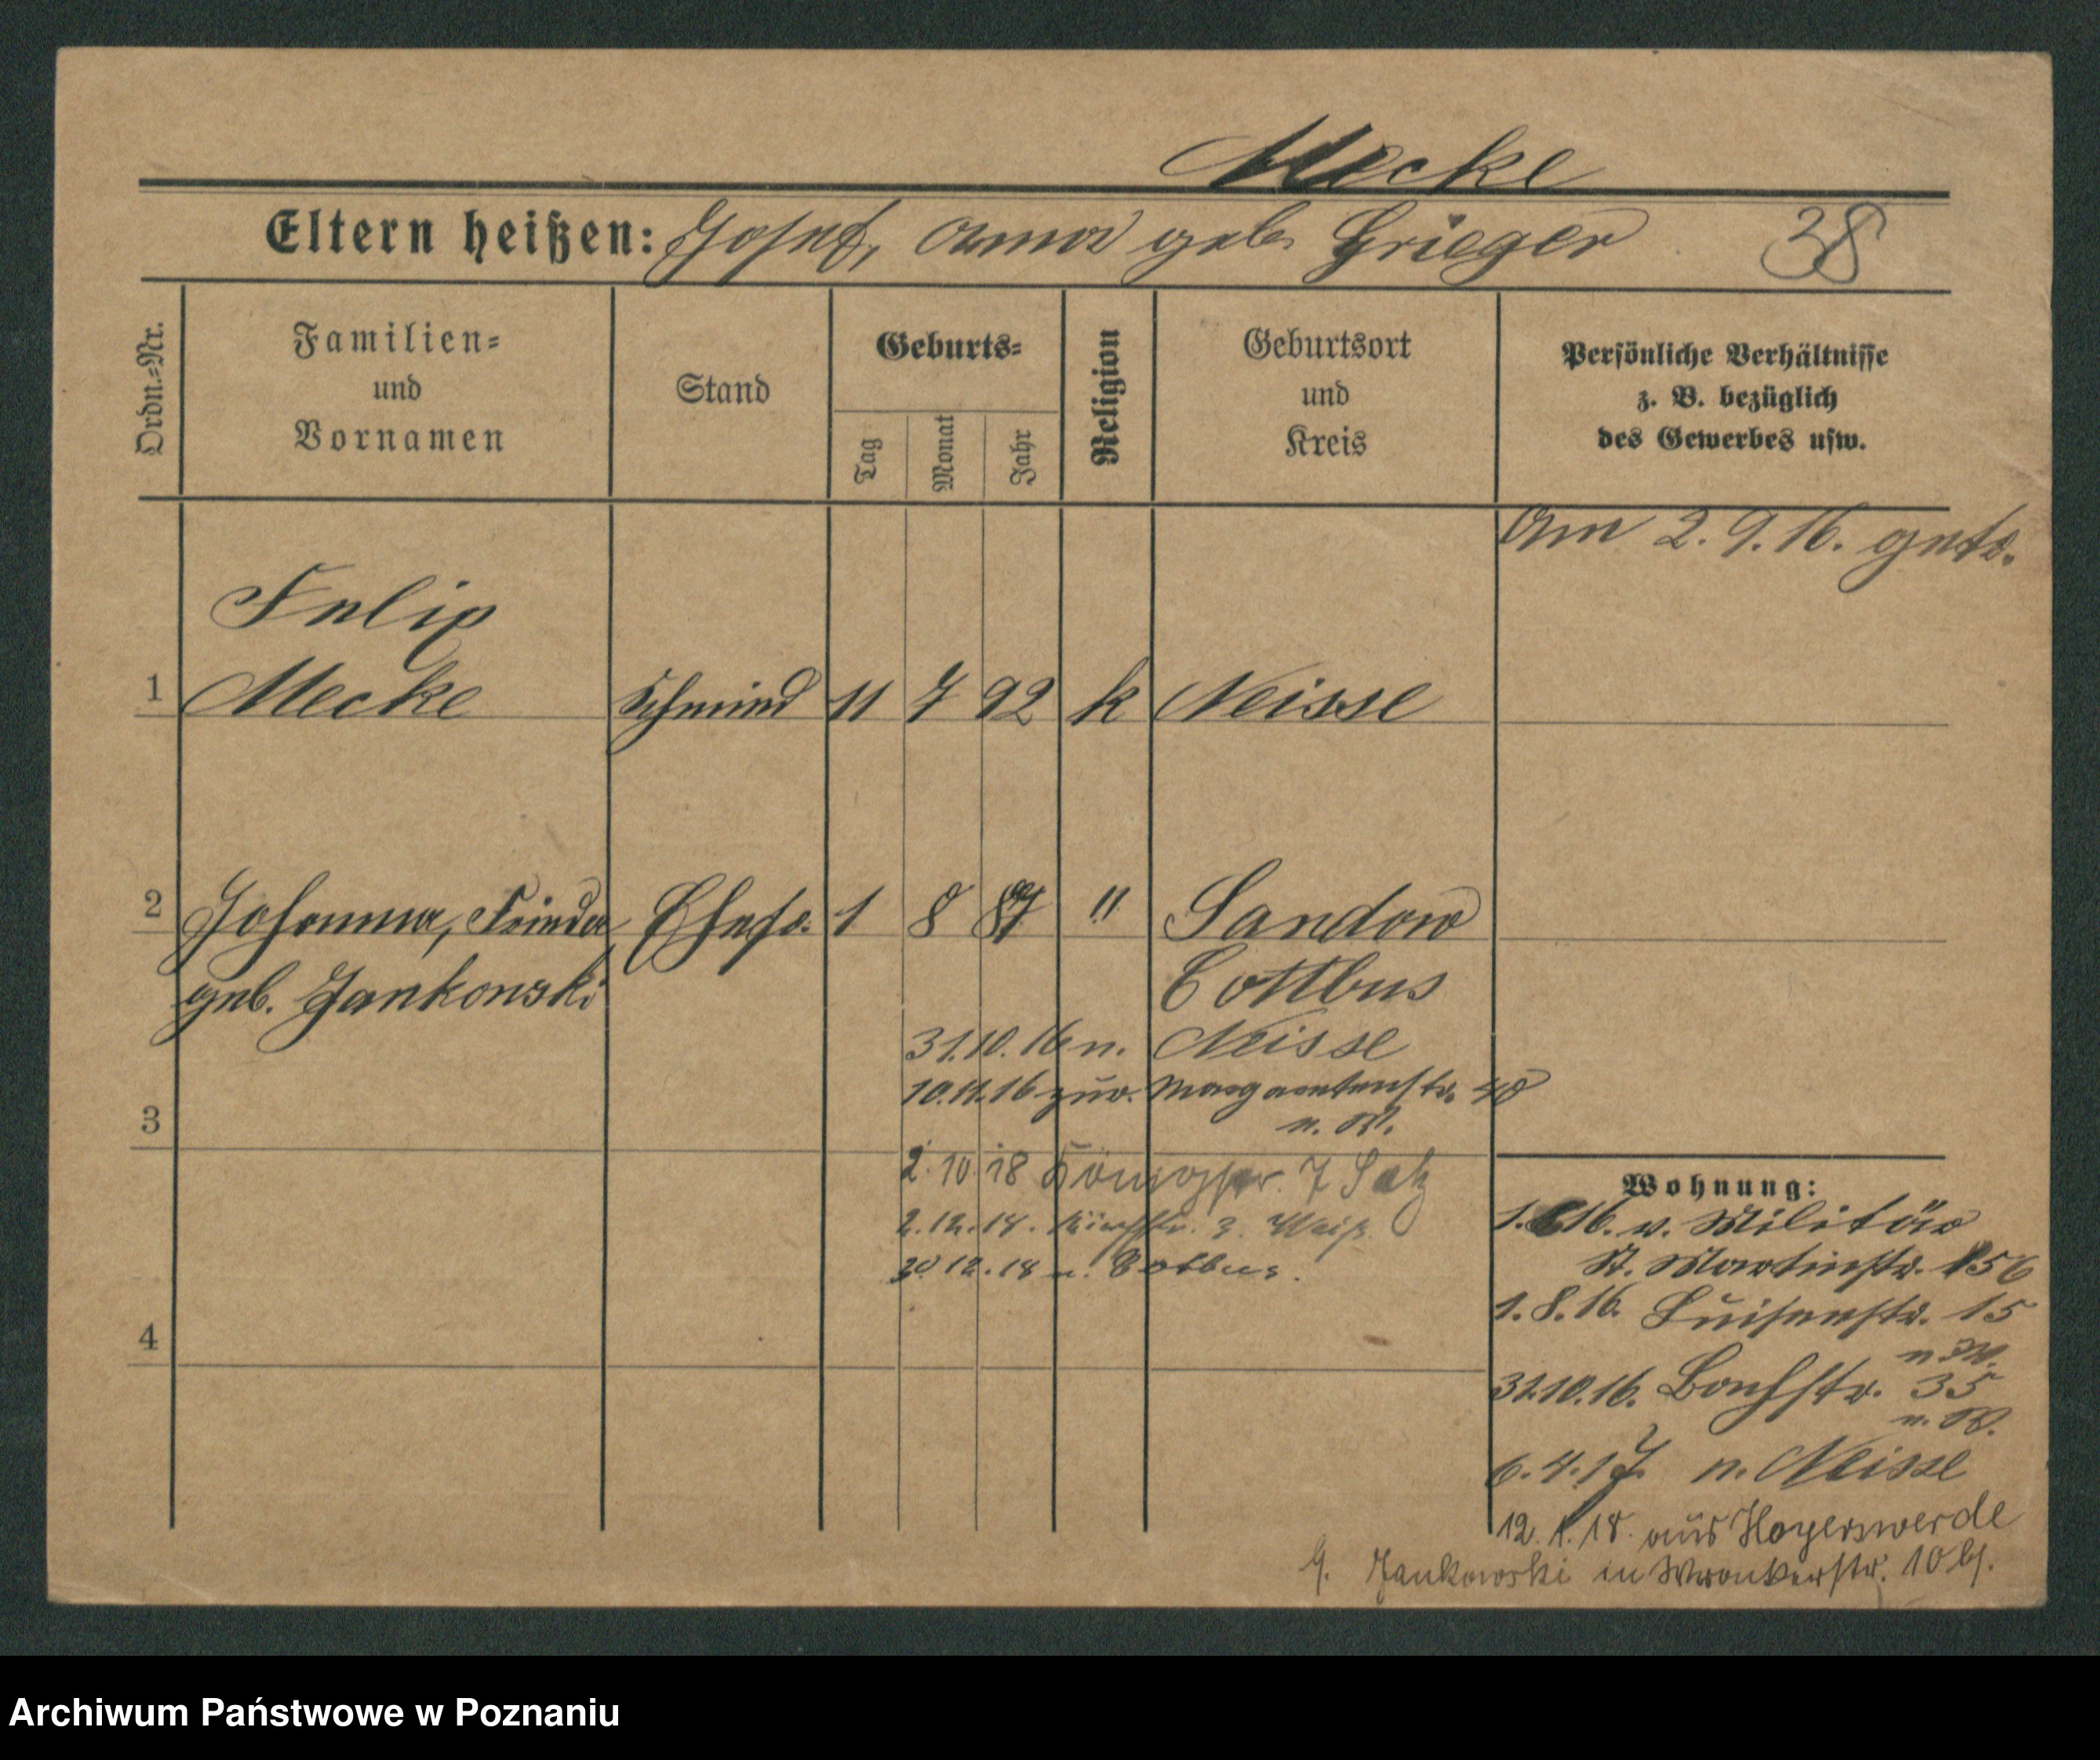 Mecke
Eltern heißen: Josef, Anna geb. Grieger 38
Ordn.=Nr.
Familien=
und
Vornamen
Stand
Geburts=
Tag
Monat
Jahr
Religion
Geburtsort
und
Kreis
Persönliche Verhältnisse
z. B. bezüglich
des Gewerbes usw.
Am 2. 9. 16. getr.
Felix
1 Mecke Schmied 11 7 92 k Neisse
2 Johanna, Frieda Ehefr. 1 8 87 " Sandow
geb. Jankowski Cottbus
31.10.16 n. Neisse
10.11.16 zur. Margaretenstr. 48
3 n. W.
2. 10 18 7
2.12.18. 3.
30 12.18 n. Cottbus.
Wohnung:
1. 6 16. v. Militär
St. Martinstr. 56
1. 8. 16. Luisenstr. 15
n W.
31.10.16. Bachstr. 35
n. W.
6. 4. 17. n. Neisse
4
12. 1. 18. aus Hoyerswerde
Jankowski in Wronkerstr. 10
Archiwum Państwowe w Poznaniu